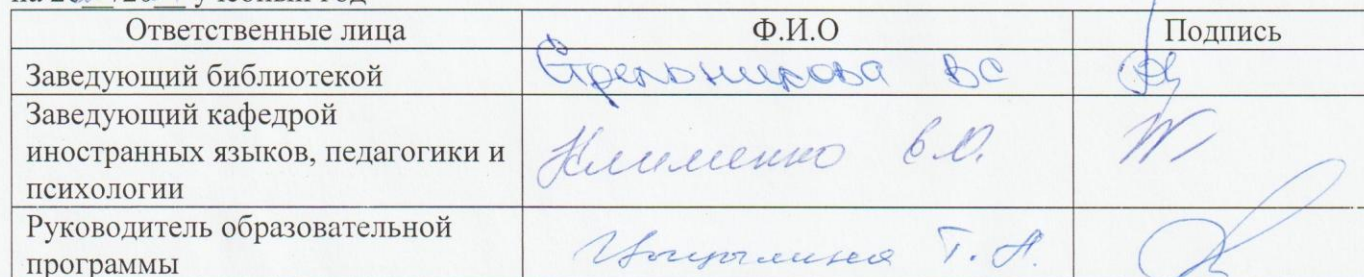 учебный год
Ответственные лица Ф.И.О Подпись
Заведующий библиотекой Стрельникова ВС
Заведующий кафедрой
иностранных языков, педагогики и
психологии Клименко
Руководитель образовательной
программы Т. А.